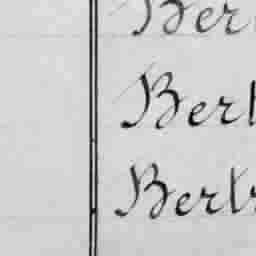 Ber
Bert
Bertr